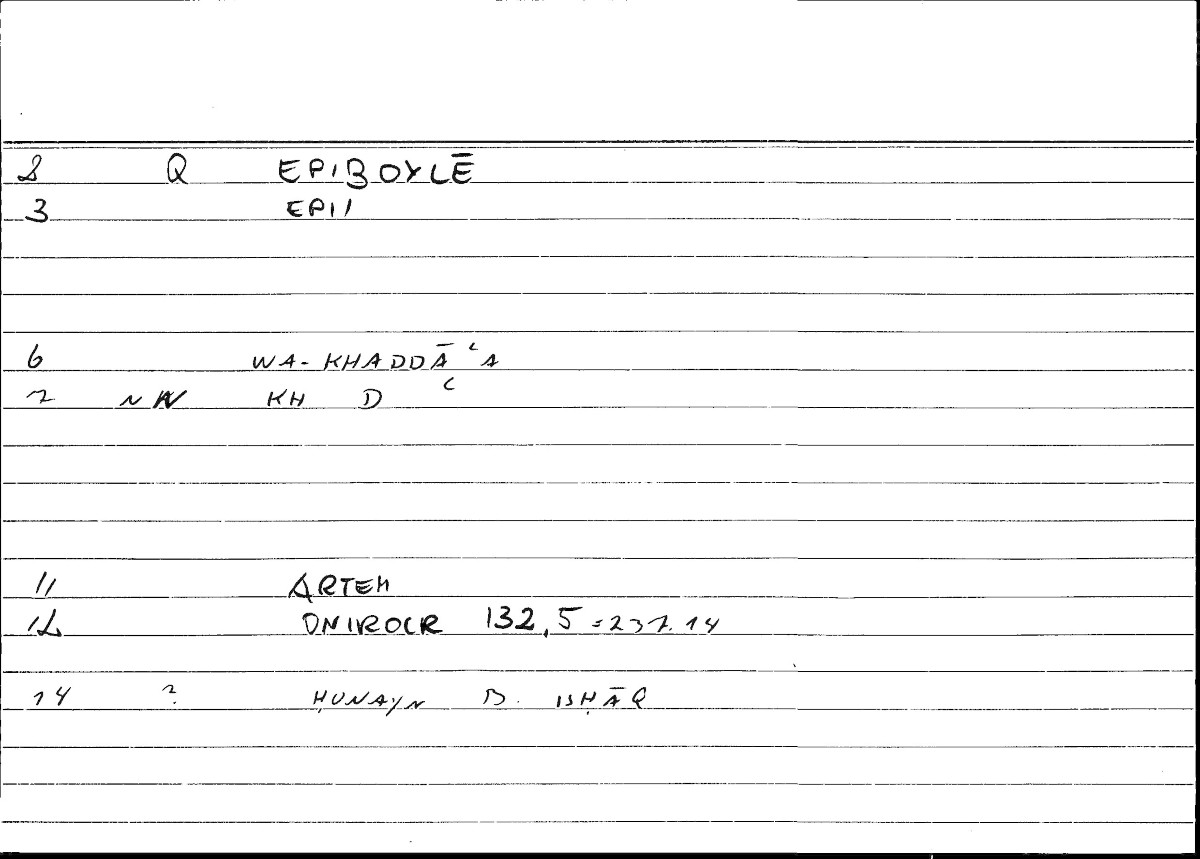 2 Q EPIBOYLĒ
3 EPI1
6 WA-KHADDĀʿA
7 NW KH D ʿ
11 ARTEM
12 ONIROCR 132,5=237.14
14 ? ḤUNAYN B. ISḤĀQ